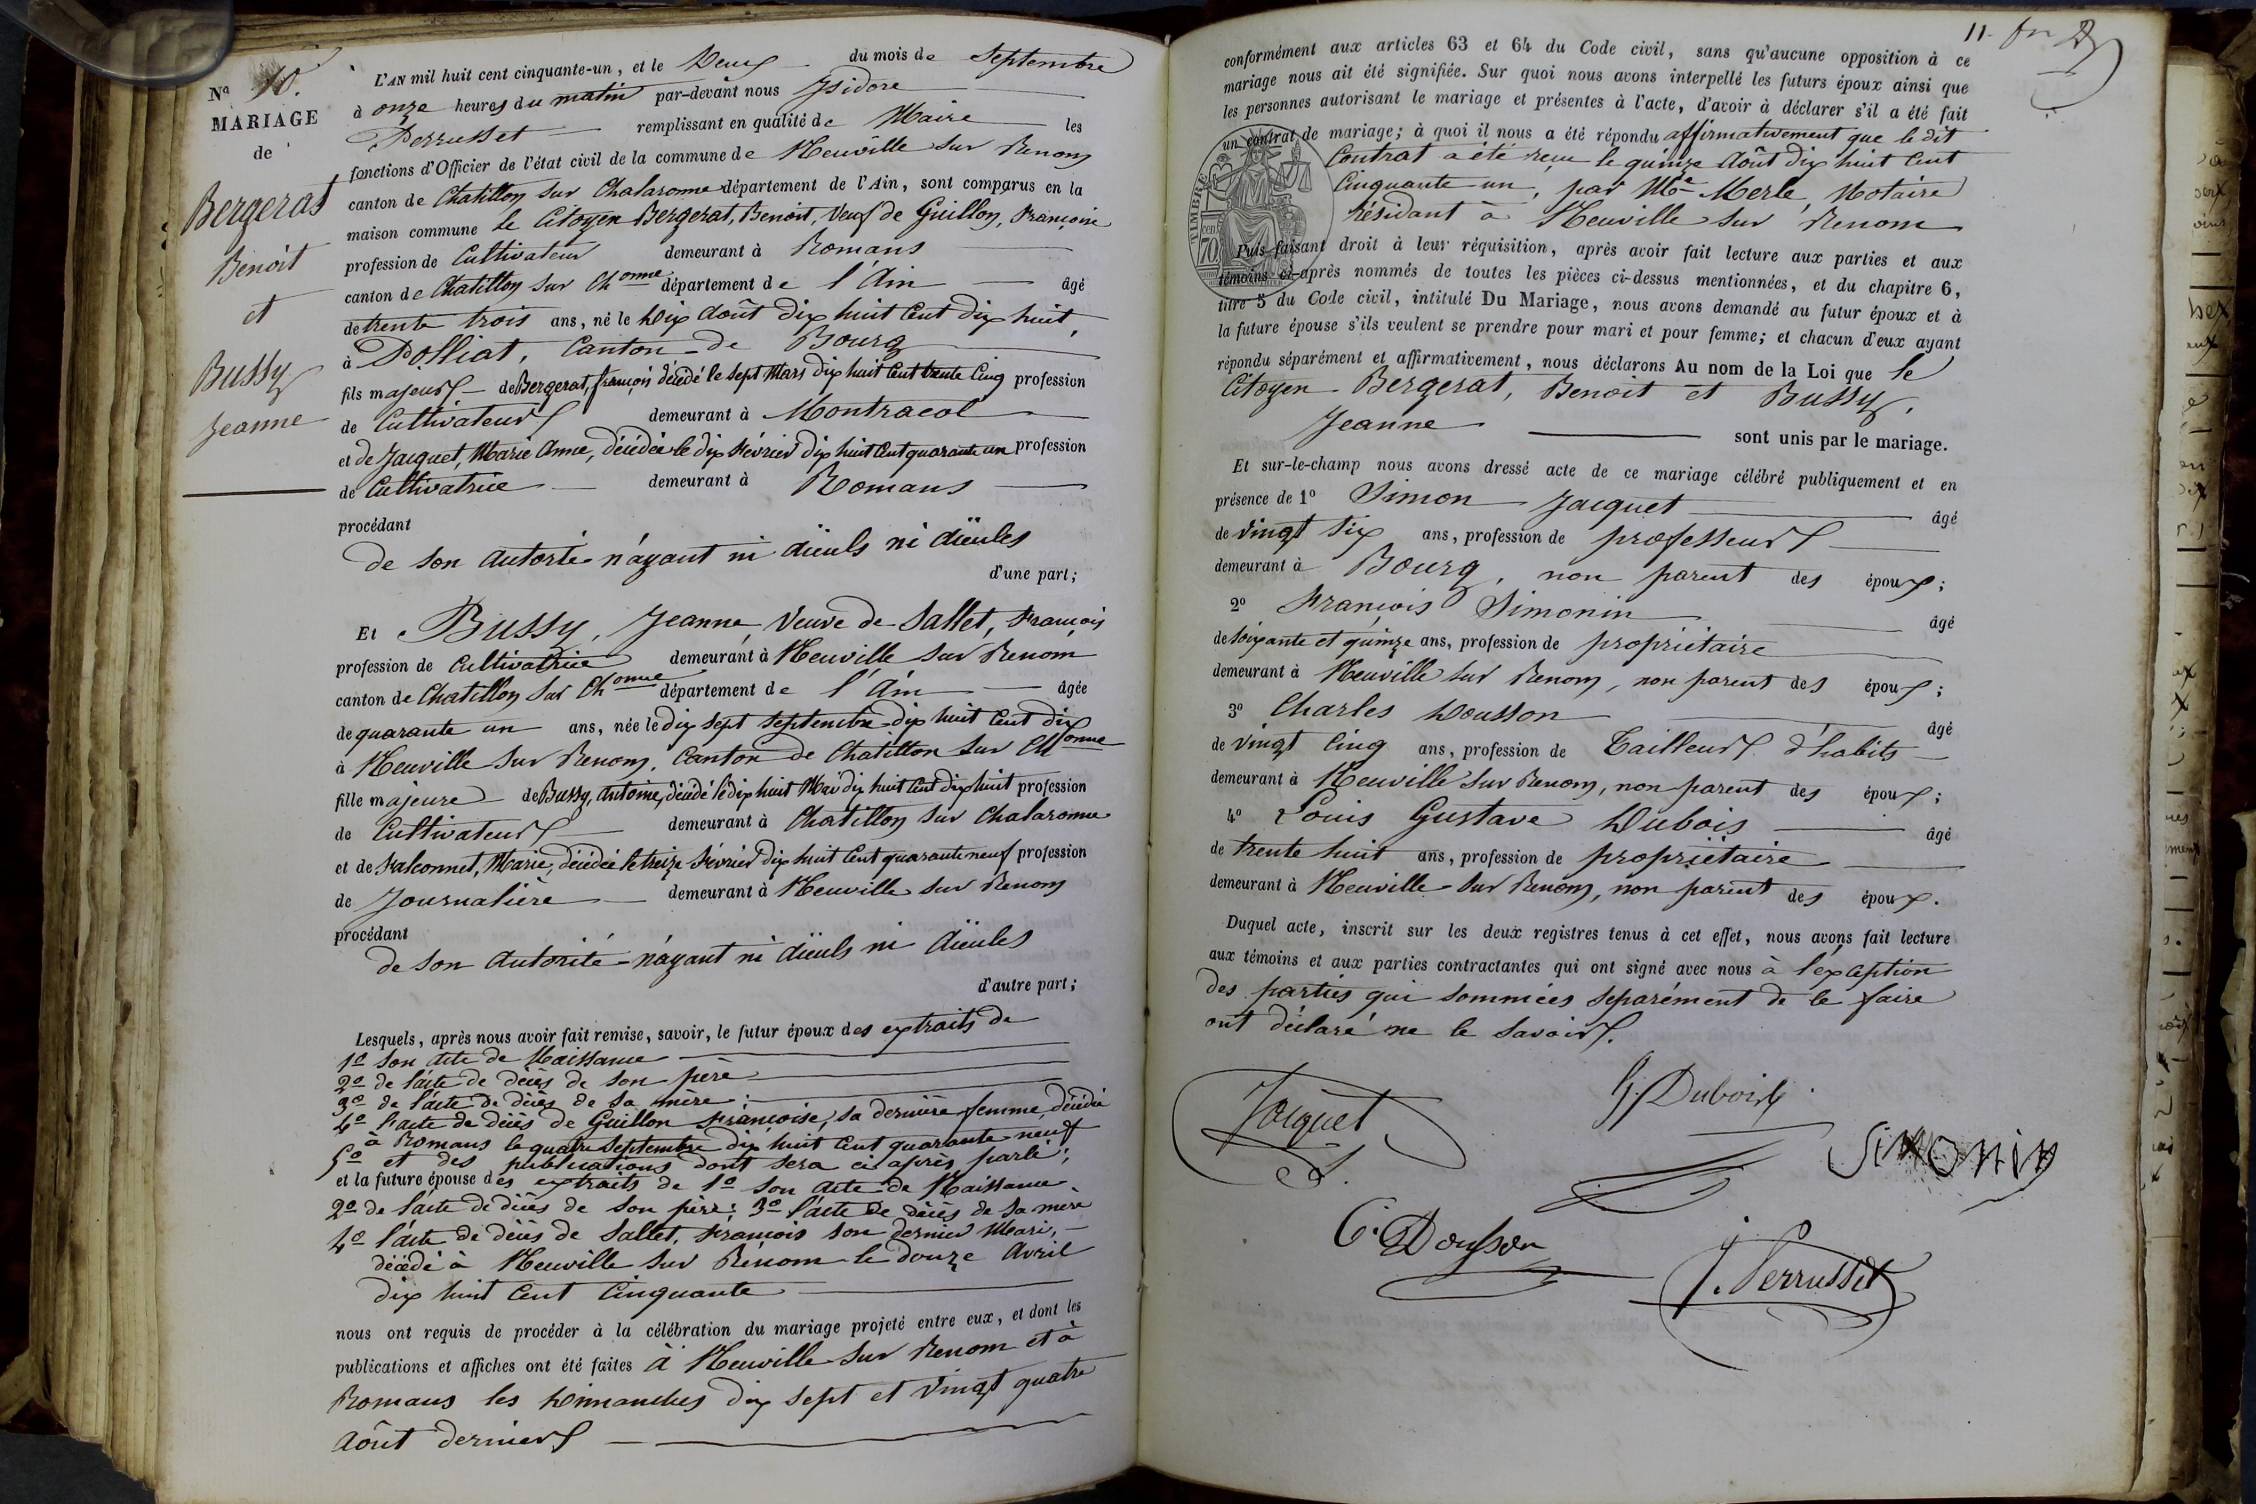 No 10.
MARIAGE
de
Bergerat
Benoit
et
Bussy
Jeanne
L'AN mil huit cent cinquante-un, et le Deux du mois de Septembre
à onze heures du matin par-devant nous Isidore
Perrusset remplissant en qualité de Maire les
fonctions d'Officier de l'état civil de la commune de Neuville sur Renom
canton de Chatillon sur Chalaronne département de l'Ain, sont comparus en la
maison commune le Citoyen Bergerat, Benoit, Veuf de Guillon, Françoise
profession de Cultivateur demeurant à Romans
canton de Chatillon sur Chonne département de l'Ain âgé
de trente trois ans, né le Dix Août Dix huit Cent Dix huit,
à Polliat, Canton de Bourg
fils majeur de Bergerat, françois décédé le sept Mars Dix huit Cent trente Cinq profession
de Cultivateur demeurant à Montracol
et de Jacquet, Marie Anne, décédée le dix Février Dix huit Cent quarante un profession
de Cultivatrice demeurant à Romans
procédant
de son autorié n'ayant ni aïeuls ni aïeules
d'une part;
Et Bussy, Jeanne, Veuve de Sallet, François
profession de Cultivatrice demeurant à Neuville sur Renom
canton de Chatillon sur Chonne département de l'Ain âgée
de quarante un ans, née le dix sept septembre dix huit Cent dix
à Neuville sur Renom, Canton de Chatillon sur Chonne
fille majeure de Bussy, Antoine, décédé le dix huit Mai dix huit Cent dix huit profession
de Cultivateur demeurant à Chatillon sur Chalaronne
et de Falconnet, Marie, décédée le treize Février dix huit Cent quarante neuf profession
de Journalière demeurant à Neuville sur Renom
procédant
de son autorité n'ayant ni aïeuls ni aïeules
d'autre part;
Lesquels, après nous avoir fait remise, savoir, le futur époux des extraits de
1o son acte de Naissance
2o de l'acte de décès de son père
3o de l'acte de décès de sa mère;
4o l'acte de décès de Guillon Françoise, sa dernière femme, décédée
à Romans le quatre septembre dix huit Cent quarante neuf
5o et des publications dont sera ci après parlé;
et la future épouse des extraits de 1o son acte de Naissance
2o de l'acte de décès de son père; 3o l'acte de décès de sa mère
4o l'acte de décès de Sallet, François son dernier Mari,
décédé à Neuville sur Renom le douze Avril
dix huit Cent Cinquante
nous ont requis de procéder à la célébration du mariage projeté entre eux, et dont les
publications et affiches ont été faites à Neuville sur Renom et à
Romans les Dimanches dix sept et vingt quatre
Août dernier
11
conformément aux articles 63 et 64 du Code civil, sans qu'aucune opposition à ce
mariage nous ait été signifiée. Sur quoi nous avons interpellé les futurs époux ainsi que
les personnes autorisant le mariage et présentes à l'acte, d'avoir à déclarer s'il a été fait
un contrat de mariage; à quoi il nous a été répondu affirmativement que le dit
Contrat a été reçu le quinze Août dix huit Cent
Cinquante un, par Me Merle, Notaire
résidant à Neuville sur Renom
TIMBRE
70
Puis faisant droit à leur réquisition, après avoir fait lecture aux parties et aux
témoins ci-après nommés de toutes les pièces ci-dessus mentionnées, et du chapitre 6,
titre 5 du Code civil, intitulé Du Mariage, nous avons demandé au futur époux et à
la future épouse s'ils veulent se prendre pour mari et pour femme; et chacun d'eux ayant
répondu séparément et affirmativement, nous déclarons Au nom de la Loi que le
Citoyen Bergerat, Benoit et Bussy,
Jeanne sont unis par le mariage.
Et sur-le-champ nous avons dressé acte de ce mariage célébré publiquement et en
présence de 1o Simon Jacquet âgé
de vingt six ans, profession de professeur
demeurant à Bourg, non parent des époux;
2o François Simonin âgé
de soixante et quinze ans, profession de propriétaire
demeurant à Neuville sur Renom, non parent des époux;
3o Charles Dousson âgé
de vingt Cinq ans, profession de Tailleur d'habits
demeurant à Neuville sur Renom, non parent des époux;
4o Louis Gustave Dubois âgé
de trente huit ans, profession de propriétaire
demeurant à Neuville sur Renom, non parent des époux.
Duquel acte, inscrit sur les deux registres tenus à cet effet, nous avons fait lecture
aux témoins et aux parties contractantes qui ont signé avec nous à l'exception
des parties qui sommées separément de le faire
ont déclaré ne le savoir.
Jacquet
S.
G. Dubois
Simonin
C. Dousson
J. Perrusset